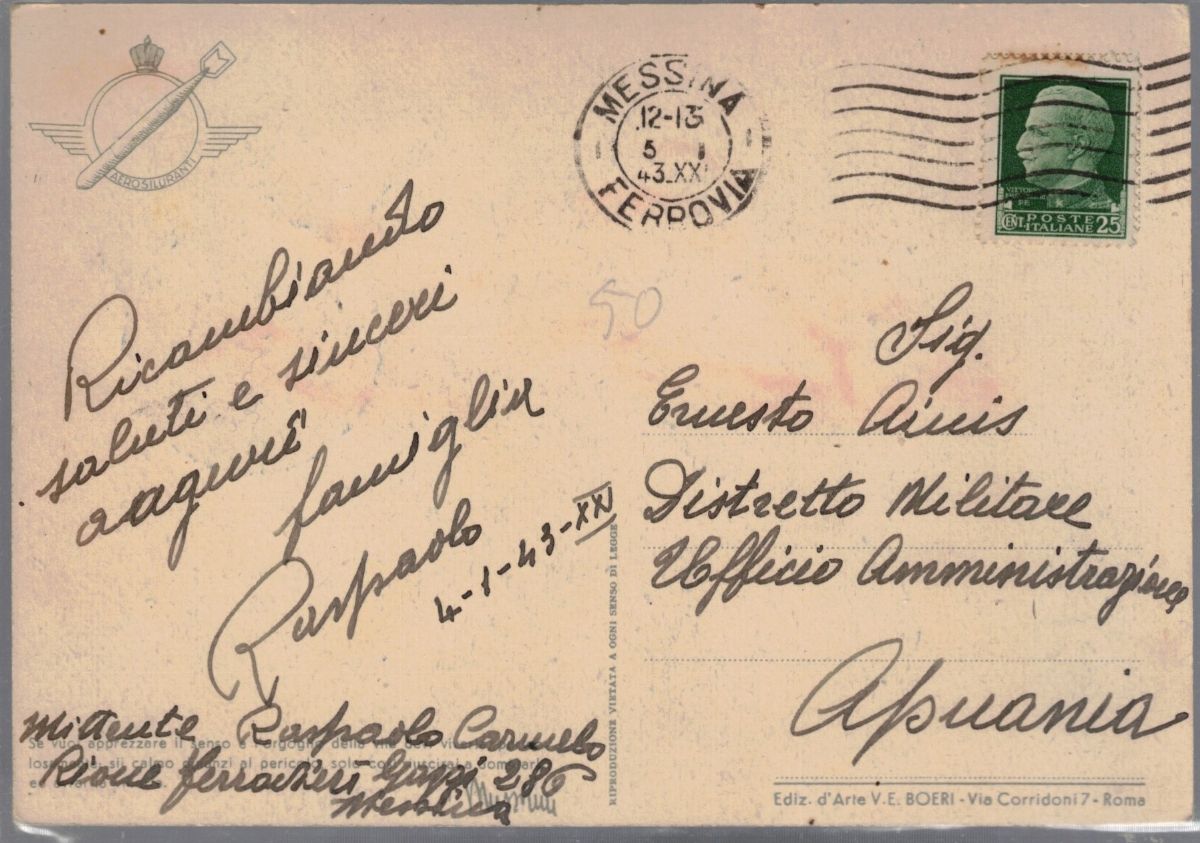 AEROSILURANTI
MESSINA
12-13
5 1
43.XXI
FERROVIA
POSTE
ITALIANE
CENT. 25
50
Ricambiando
saluti e sinceri
auguri
famiglia
Raspaolo
4-1-43-XXI
Sig.
Ernesto Ainis
Distretto Militare
Ufficio Amministrazione
Apuania
Mittente Raspaolo Carmelo
Rione Ferrovieri Gazzi 286
Messina
Se vuoi apprezzare il senso e l'orgoglio della vita
al pericolo, solo
REPRODUZIONE VIETATA A OGNI SENSO DI LEGGE
Ediz. d'Arte V. E. BOERI - Via Corridoni 7 - Roma